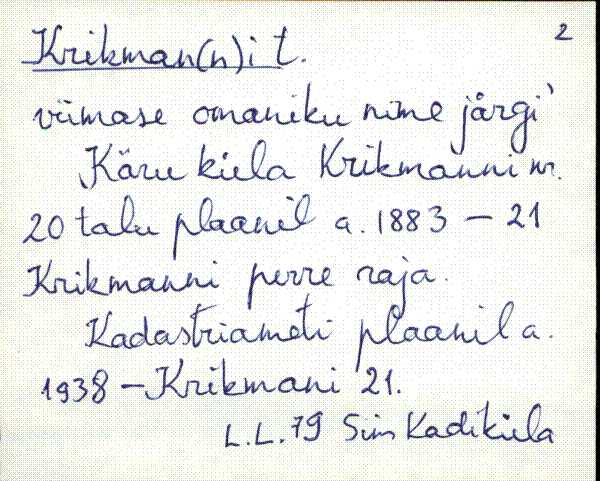 2
Krikman(n)i t.
viimase omaniku nime järgi
Käru küla Krikmanni nr.
20 talu plaanil a. 1883 – 21
Krikmanni perre raja.
Kadastriameti plaanil a.
1938 – Krikmani 21.
L.L. 79 Sim Kadiküla